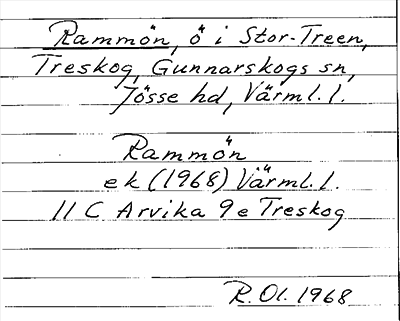 Rammön, ö i Stor-Treen,
Treskog, Gunnarskogs sn,
Jösse hd, Värml. l.
Rammön
ek (1968) Värml. l.
11 C Arvika 9e Treskog
R. Ol. 1968